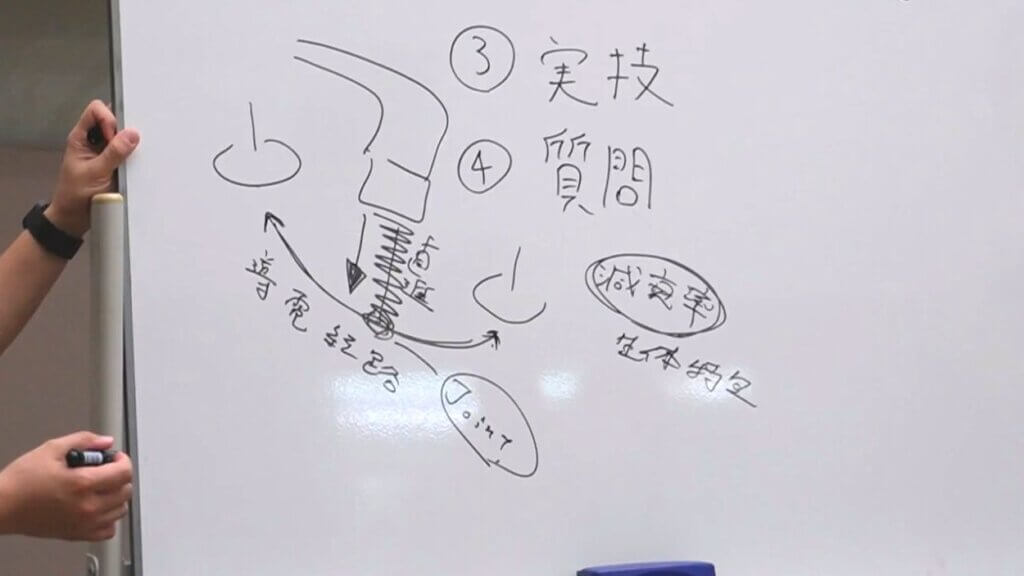 ③ 実技
④ 質問
直進
導電経路
減衰率
生体的
Joint